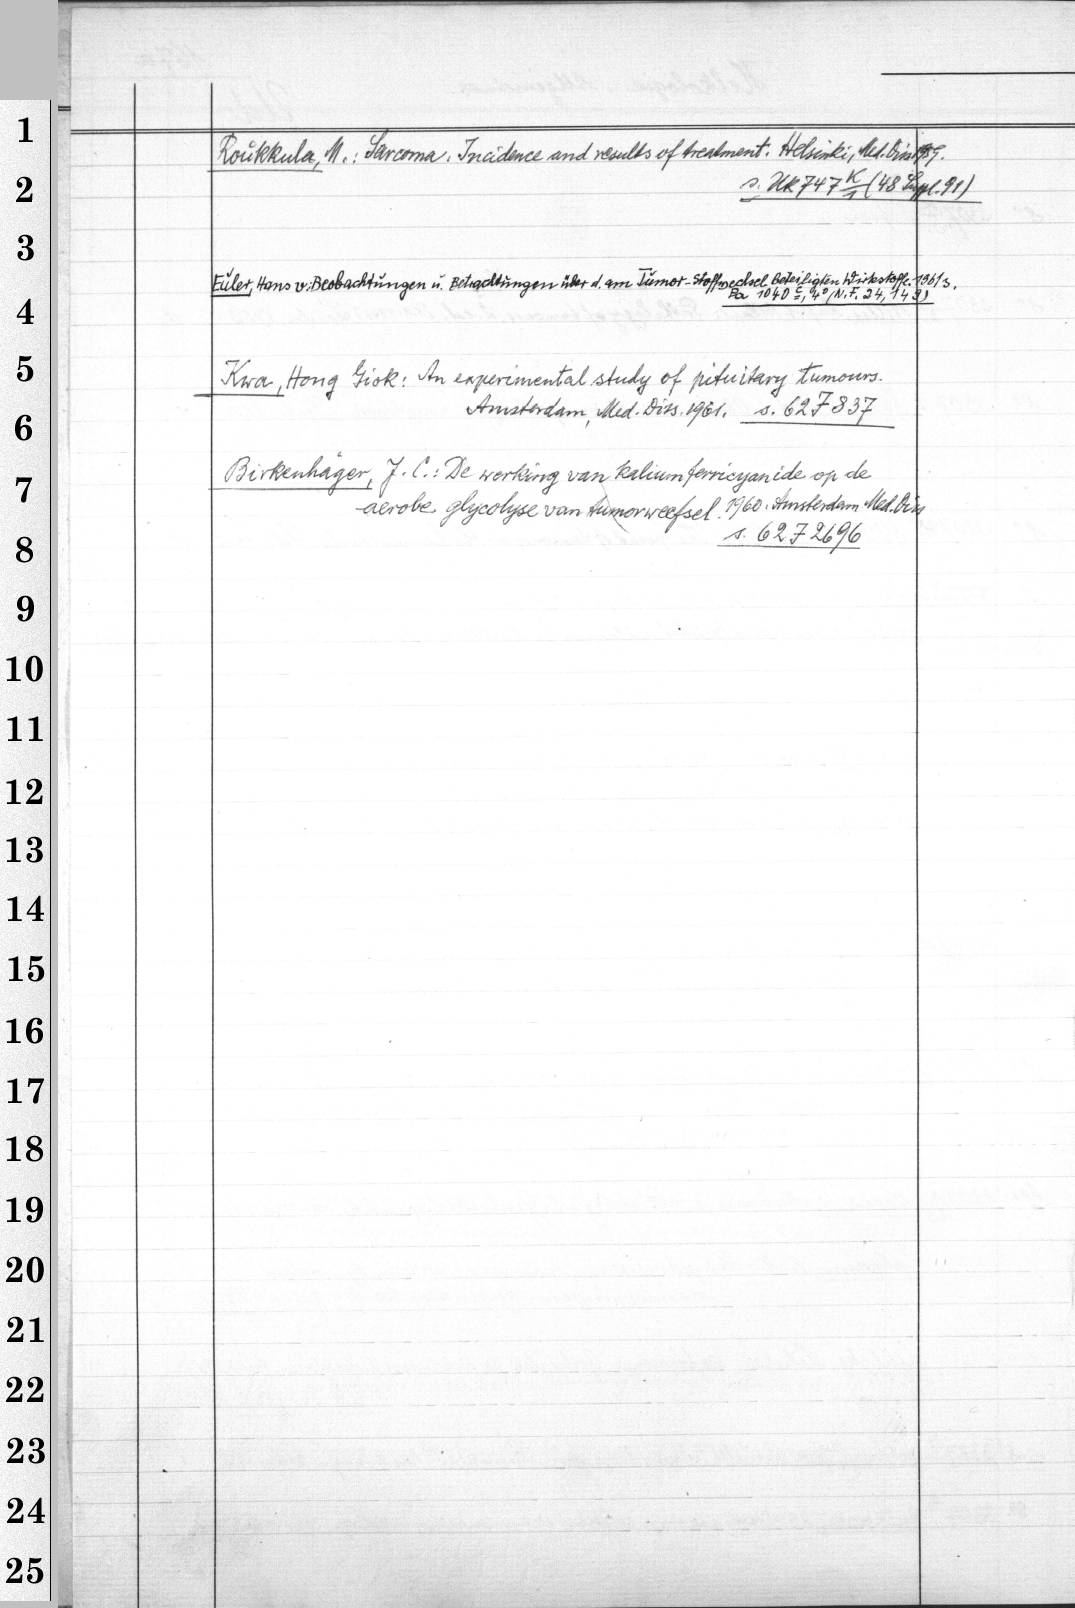 1
Roukkula, M.: Sarcoma. Incidence and results of treatment. Helsinki, Med. Diss. 1959.
2
s. Uk 747 K/1 (48 Suppl. 91)
3
Euler, Hans v.: Beobachtungen u. Betrachtungen über d. am Tumor-Stoffwechsel beteiligten Wirkstoffe. 1961 s.
Pa 1040 c, 4° (N. F. 24, 149)
4
5
Kwa, Hong Giok: An experimental study of pituitary tumours.
Amsterdam, Med. Diss. 1961. s. 62 7837
6
Birkenhäger, J. C.: De werking van kaliumferricyanide op de
7
aerobe glycolyse van tumorweefsel. 1960. Amsterdam Med. Diss
s. 62 72696
8
9
10
11
12
13
14
15
16
17
18
19
20
21
22
23
24
25